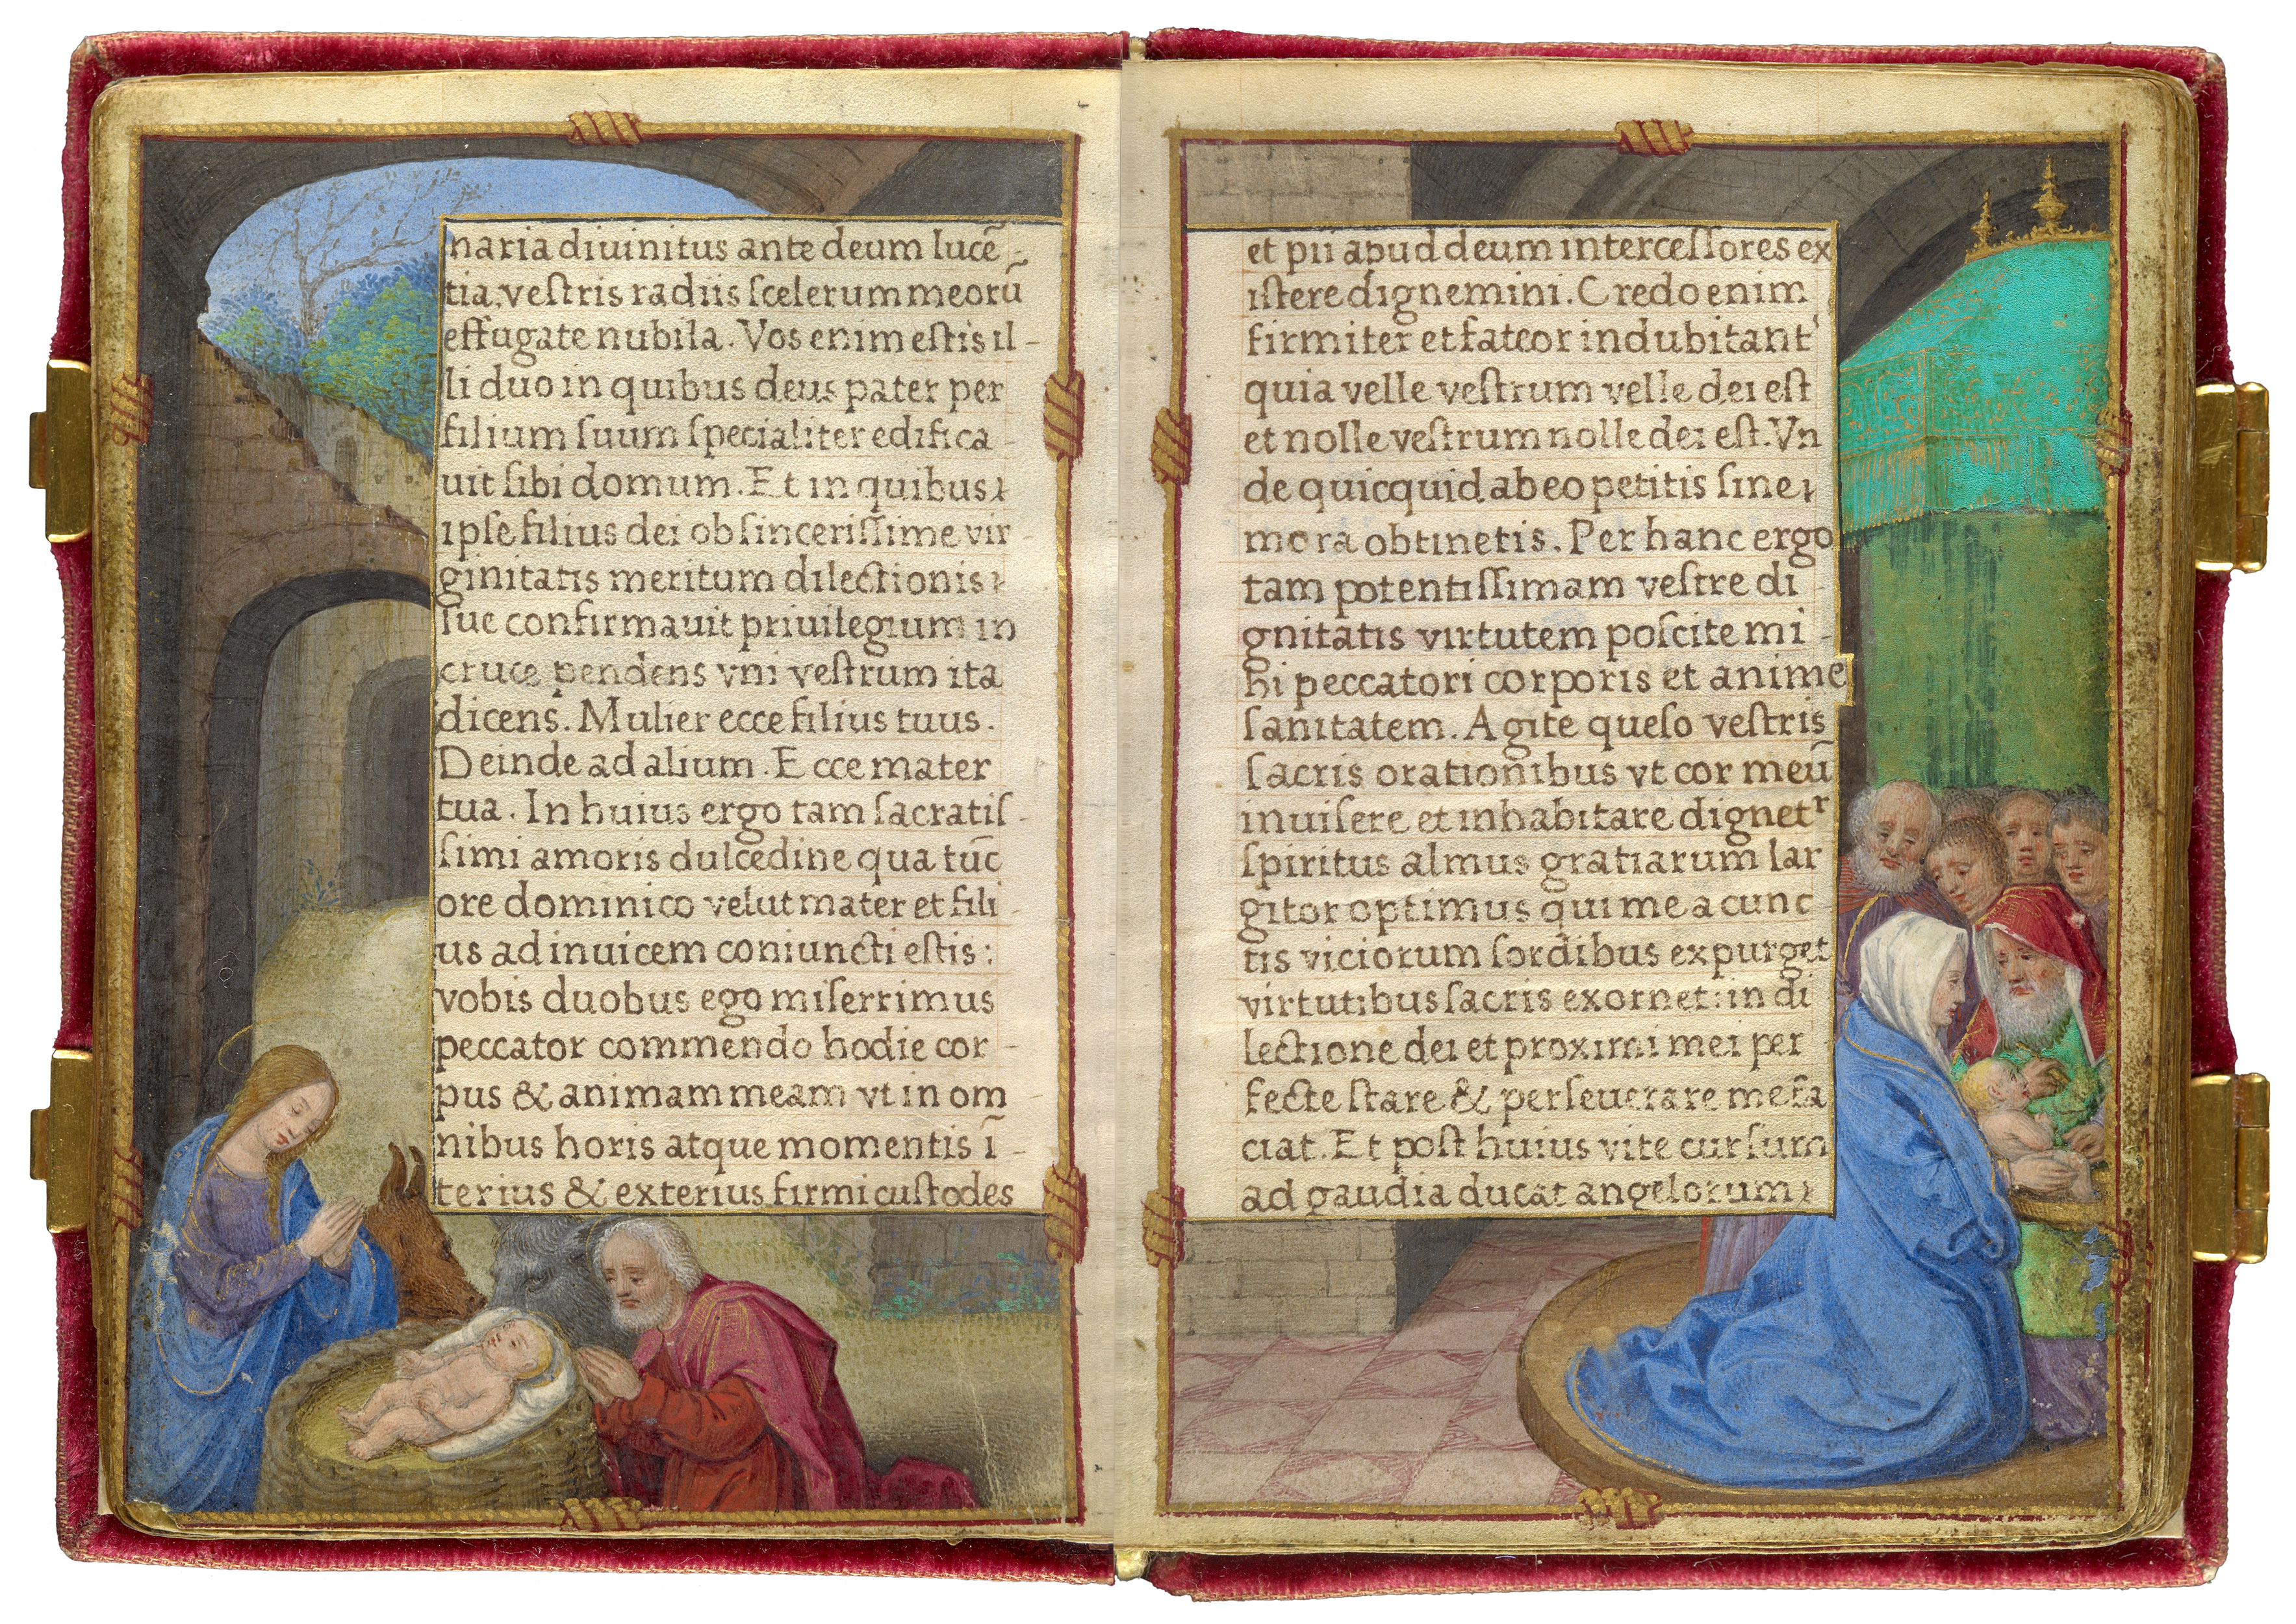 naria diuinitus ante deum lucē-
tia: veſtris radiis ſcelerum meorū
effugate nubila. Vos enim eſtis il-
li duo in quibus deus pater per
filium ſuum ſpecialiter edifica-
uit ſibi domum. Et in quibus
ipſe filius dei ob ſinceriſſime vir-
ginitatis meritum dilectionis
ſue confirmauit priuilegium in
cruce pendens vni veſtrum ita
dicens. Mulier ecce filius tuus.
Deinde ad alium. Ecce mater
tua. In huius ergo tam ſacratiſ-
ſimi amoris dulcedine qua tūc
ore dominico velut mater et fili-
us ad inuicem coniuncti eſtis:
vobis duobus ego miſerrimus
peccator commendo hodie cor-
pus & animam meam vt in om
nibus horis atque momentis ī-
terius & exterius firmi cuſtodes
et pii apud deum interceſſores ex
iſtere dignemini. Credo enim
firmiter et fateor indubitant'
quia velle veſtrum velle dei eſt
et nolle veſtrum nolle dei eſt. Vn
de quicquid ab eo petitis ſine
mora obtinetis. Per hanc ergo
tam potentiſſimam veſtre di-
gnitatis virtutem poſcite mi-
hi peccatori corporis et anime
ſanitatem. Agite queſo veſtris
ſacris orationibus vt cor meū
inuiſere et inhabitare dignetʳ
ſpiritus almus gratiarum lar
gitor optimus qui me a cunc
tis viciorum ſordibus expurget
virtutibus ſacris exornet: in di
lectione dei et proximi mei per
fecte ſtare & perſeuerare me fa
ciat. Et poſt huius vite curſum
ad gaudia ducat angelorum